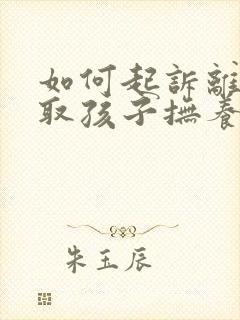 如何起訴離
取孩子撫養
朱玉辰